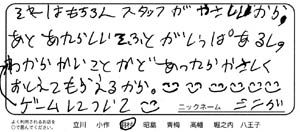 それはもちろん スタッフが やさしいから。
あと あたらしい そふとが いっぱいあるし。
わからないことがど あったらやさしく
おしえてもらえるから。
ゲームについて
ニックネーム ミニガ
よく利用されるお店を
○で囲んでください。
立川 小作 羽村 昭島 青梅 高幡 堀之内 八王子